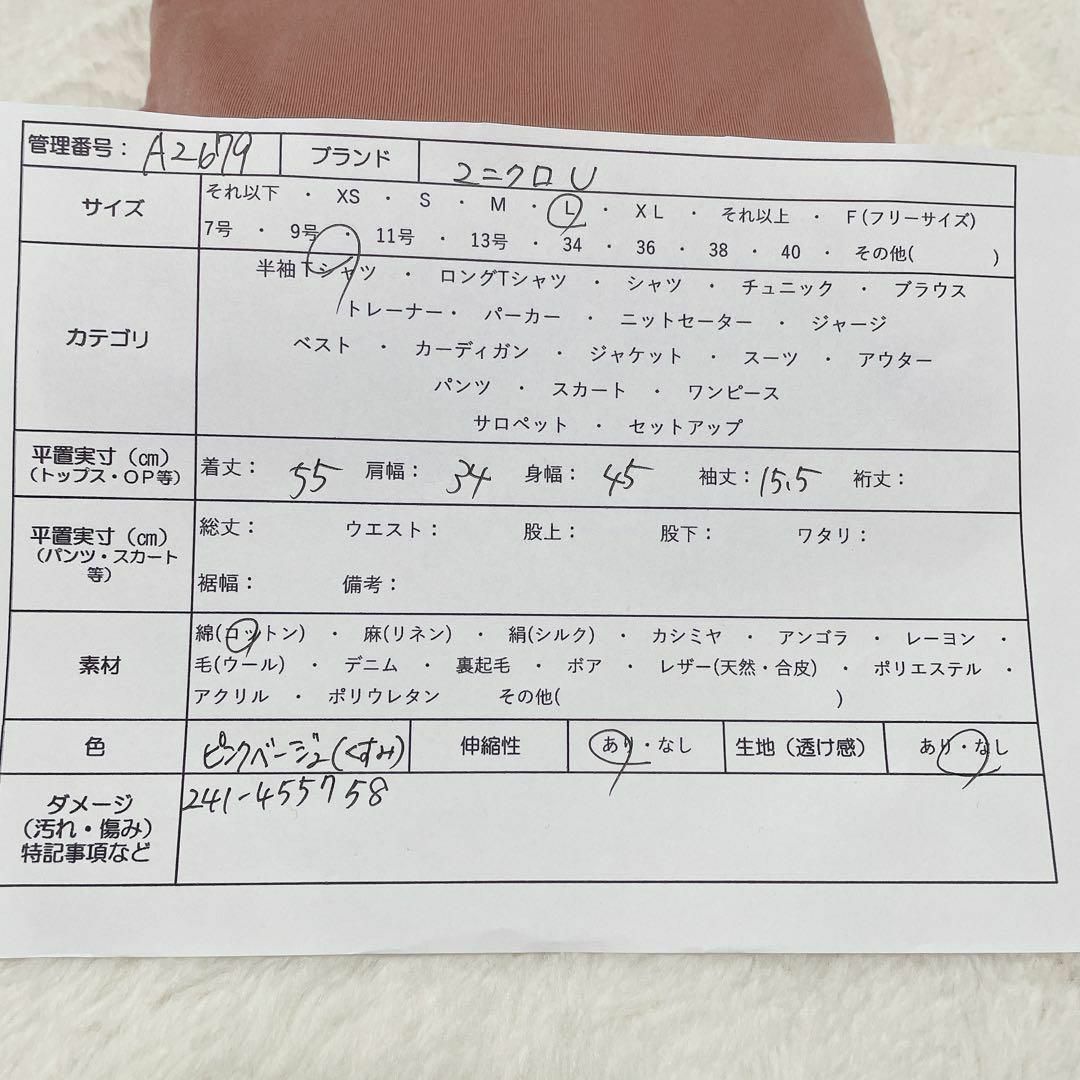 管理番号： A2679 ブランド ユニクロU
サイズ それ以下 ・ XS ・ S ・ M ・ L ・ XL ・ それ以上 ・ F(フリーサイズ)
7号 ・ 9号 ・ 11号 ・ 13号 ・ 34 ・ 36 ・ 38 ・ 40 ・ その他( )
カテゴリ 半袖Tシャツ ・ ロングTシャツ ・ シャツ ・ チュニック ・ ブラウス
トレーナー・ パーカー ・ ニットセーター ・ ジャージ
ベスト ・ カーディガン ・ ジャケット ・ スーツ ・ アウター
パンツ ・ スカート ・ ワンピース
サロペット ・ セットアップ
平置実寸（㎝）
（トップス・OP等） 着丈： 55 肩幅： 34 身幅： 45 袖丈：15.5 裄丈：
平置実寸（㎝）
（パンツ・スカート
等） 総丈： ウエスト： 股上： 股下： ワタリ：
裾幅： 備考：
素材 綿(コットン) ・ 麻(リネン) ・ 絹(シルク) ・ カシミヤ ・ アンゴラ ・ レーヨン ・
毛(ウール) ・ デニム ・ 裏起毛 ・ ボア ・ レザー(天然・合皮) ・ ポリエステル ・
アクリル ・ ポリウレタン その他( )
色 ピンクベージュ(くすみ) 伸縮性 あり・なし 生地（透け感） あり・なし
ダメージ
（汚れ・傷み）
特記事項など 241-455758